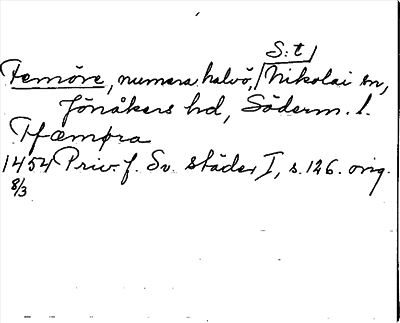 S:t
Femöre, numera halvö, Nikolai sn,
Jönåkers hd, Söderm. l.
Ffæmøra
1454 Priv. f. Sv. städer I, s. 126. orig.
8/3